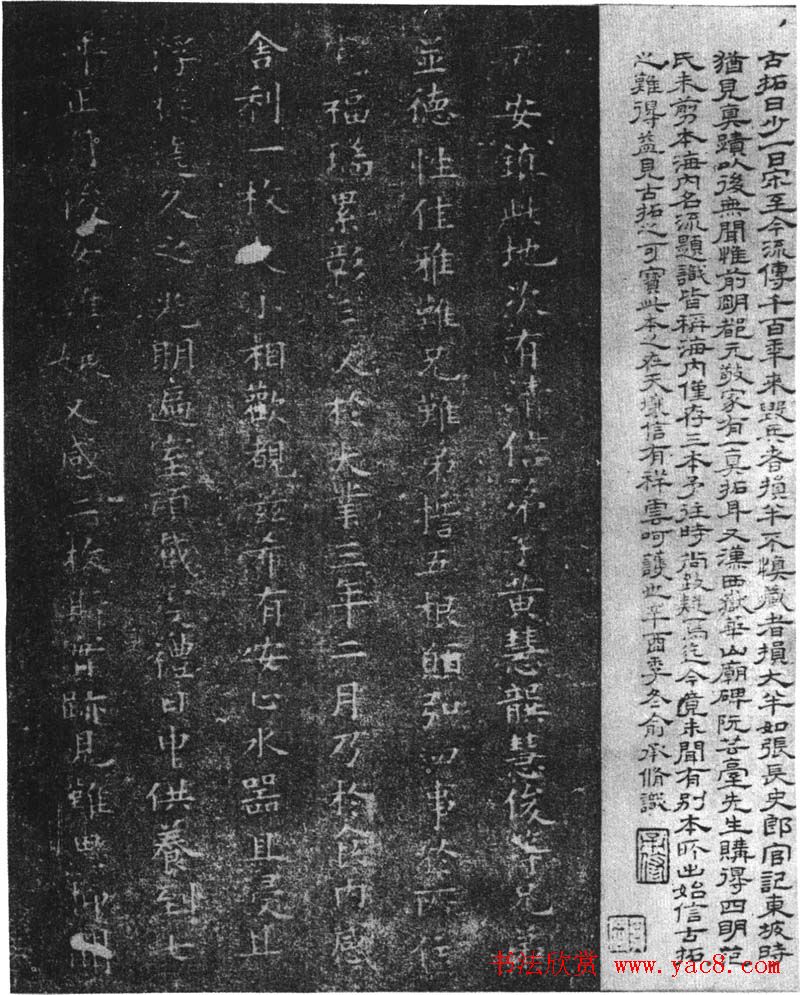 古拓日少一日宋至今流傳千百年來毀兵者損半不慎藏者損大半如張長史郎官記東坡時
猶見真蹟以後無聞惟前明都元敬家有一真拓耳又漢西嶽華山廟碑阮芸臺先生購得四明范
氏未剪本海內名流題識皆稱海內僅存三本予往時尚致疑焉迄今竟未聞有別本所出始信古拓
之難得益見古拓之可寶此本之在天壤信有祥雲呵護也辛酉季冬俞承脩識
安鎮此地次有清信弟子黃慧龔慧俊等兄弟
並德性佳雅難兄難弟 五根 弘四事於所住
福瑞累彰三 於大業三年二月乃於食內感
舍利一枚大小相歡觀茲希有安心水器且亮且
浮 久之光明遍室頂戴 禮日申供養到七
年正 俊 娘又感二枚斯 跡見雖
书法欣赏 www.yac8.com